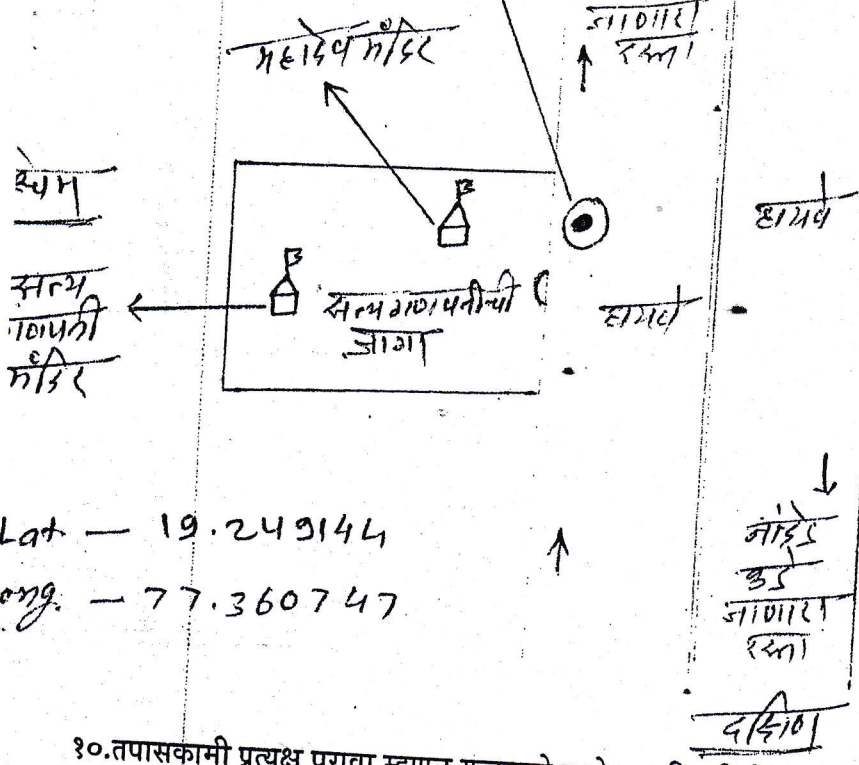 जाणारा
रस्ता
महादेव मंदिर
हायवे
सत्य
गणपती
मंदिर
सत्यगणपतीची
जागा
हायवे
Lat - 19.249144
ong. - 77.360747
नांदेड
कडे
जाणारा
रस्ता
दक्षिण
१०.तपासकामी प्रत्यक्ष पुरावा म्हणून